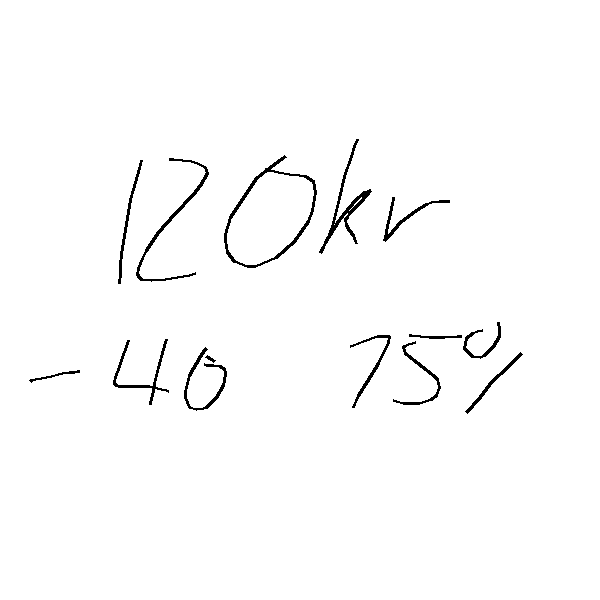 120kr
- 40 75%